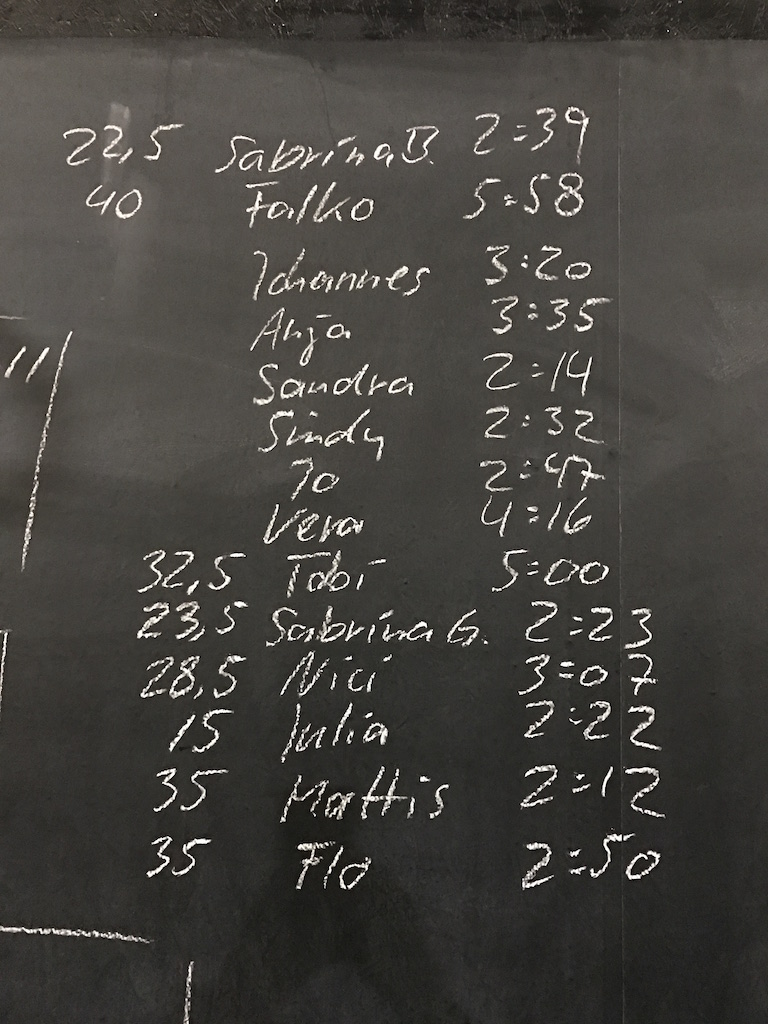 22,5 Sabrina B. 2:39
40 Falko 5:58
Johannes 3:20
Anja 3:35
Sandra 2:14
Sindy 2:32
Jo 2:47
Vera 4:16
32,5 Tobi 5:00
23,5 Sabrina G. 2:23
28,5 Nici 3:07
15 Julia 2:22
35 Mattis 2:12
35 Flo 2:50